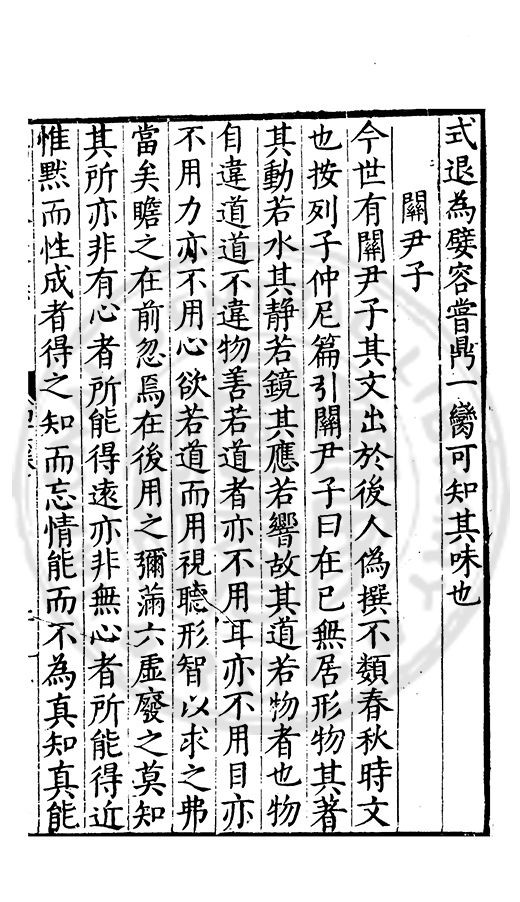 式退為嬖容嘗鼎一臠可知其味也
關尹子
今世有關尹子其文出於後人偽撰不類春秋時文
也按列子仲尼篇引關尹子曰在已無居形物其著
其動若水其静若鏡其應若響故其道若物者也物
自違道道不違物善若道者亦不用耳亦不用目亦
不用力亦不用心欲若道而用視聽形智以求之弗
當矣瞻之在前忽焉在後用之彌滿六虛廢之莫知
其所亦非有心者所能得遠亦非無心者所能得近
惟默而性成者得之知而忘情能而不為真知真能